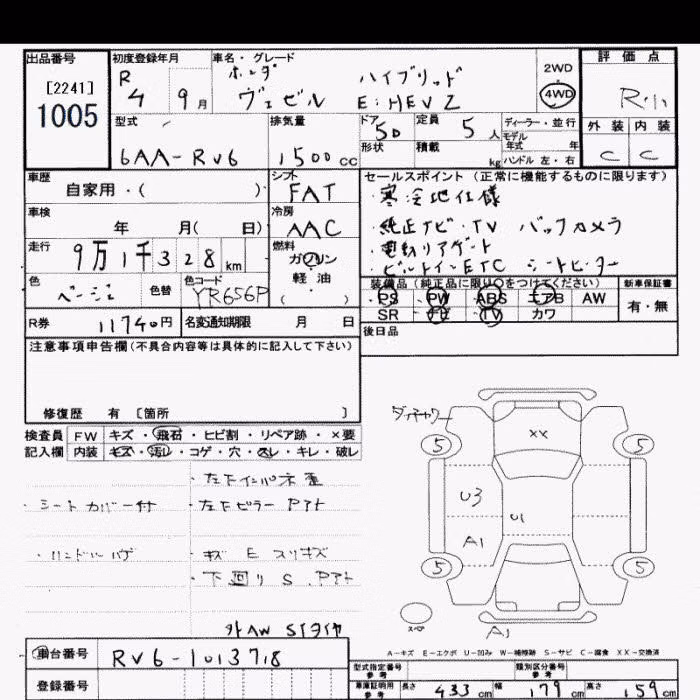 出品番号
[2241]
1005
初度登録年月
R
4 9月
車名・グレード
ホンダ ハイブリッド
ヴェゼル E:HEV Z
2WD
4WD
評価点
R
外装 内装
C C
型式
6AA-RV6
排気量
1500cc
ドア 定員
5D 5人
形状 積載
kg
ディーラー・並行
モデル
年式 年
ハンドル 左・右
車歴
自家用・( )
シフト
FAT
冷房
AAC
車検
年 月( 日)
走行
9万1千328km
燃料
ガソリン
軽油
( )
色
ベージュ
色替
色コード
YR656P
セールスポイント(正常に機能するものに限ります)
・寒冷地仕様
・純正ナビ・TV バックカメラ
・電動リアゲート
・ビルトインETC シートヒーター
装備品(純正品に限り○をつけてください)
PS PW ABS エアB AW
SR ナビ TV カワ
新車保証書
有・無
R券
11740円
名変通知期限 月 日
後日品
注意事項申告欄(不具合内容等は具体的に記入して下さい)
修復歴 有 〔箇所 〕
検査員
記入欄
FW キズ・飛石・ヒビ割・リペア跡・×要
内装 キズ・汚レ・コゲ・穴・スレ・キレ・破レ
・左下インパネ歪
・シートカバー付 ・左下ピラー Pアト
・ハンドルハゲ ・キズ E スリキズ
・下回り S.Pアト
外AW Sタイヤ
XX
5 5
U3
U1
A1
5 5
スペア
A1
A-キズ E-エクボ U-凹み W-補修跡 S-サビ C-腐食 XX-交換済
車台番号
RV6-1013718
登録番号
型式指定番号
参考
類別区分番号
参考
車庫証明用
参考
長さ 433cm 幅 179cm 高さ 159cm